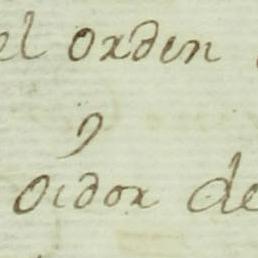 el orden
oidor de